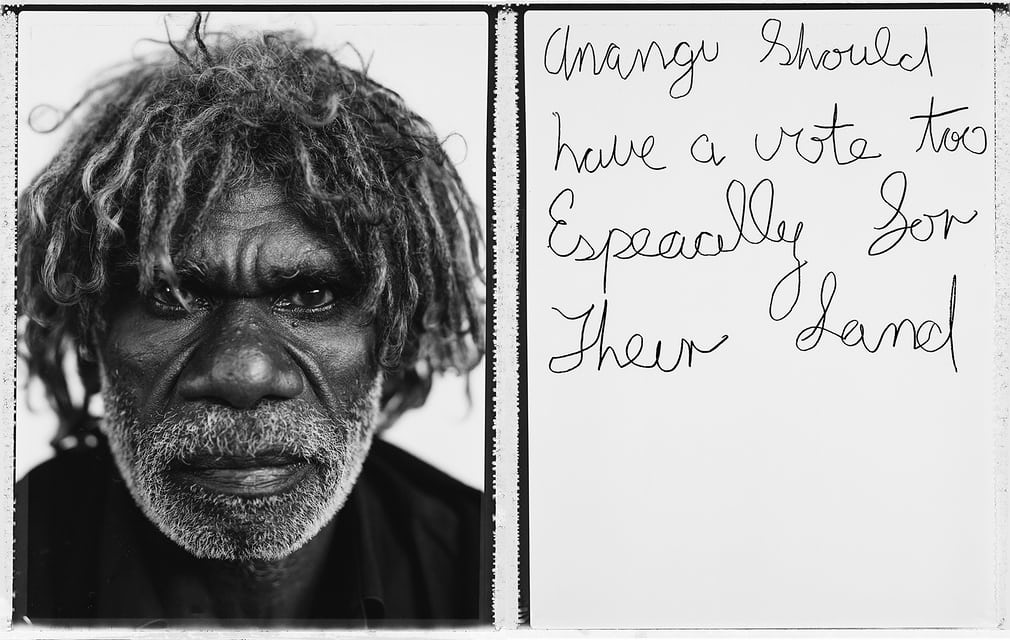 Anangu Should
have a vote too
Espeacilly for
Their Land